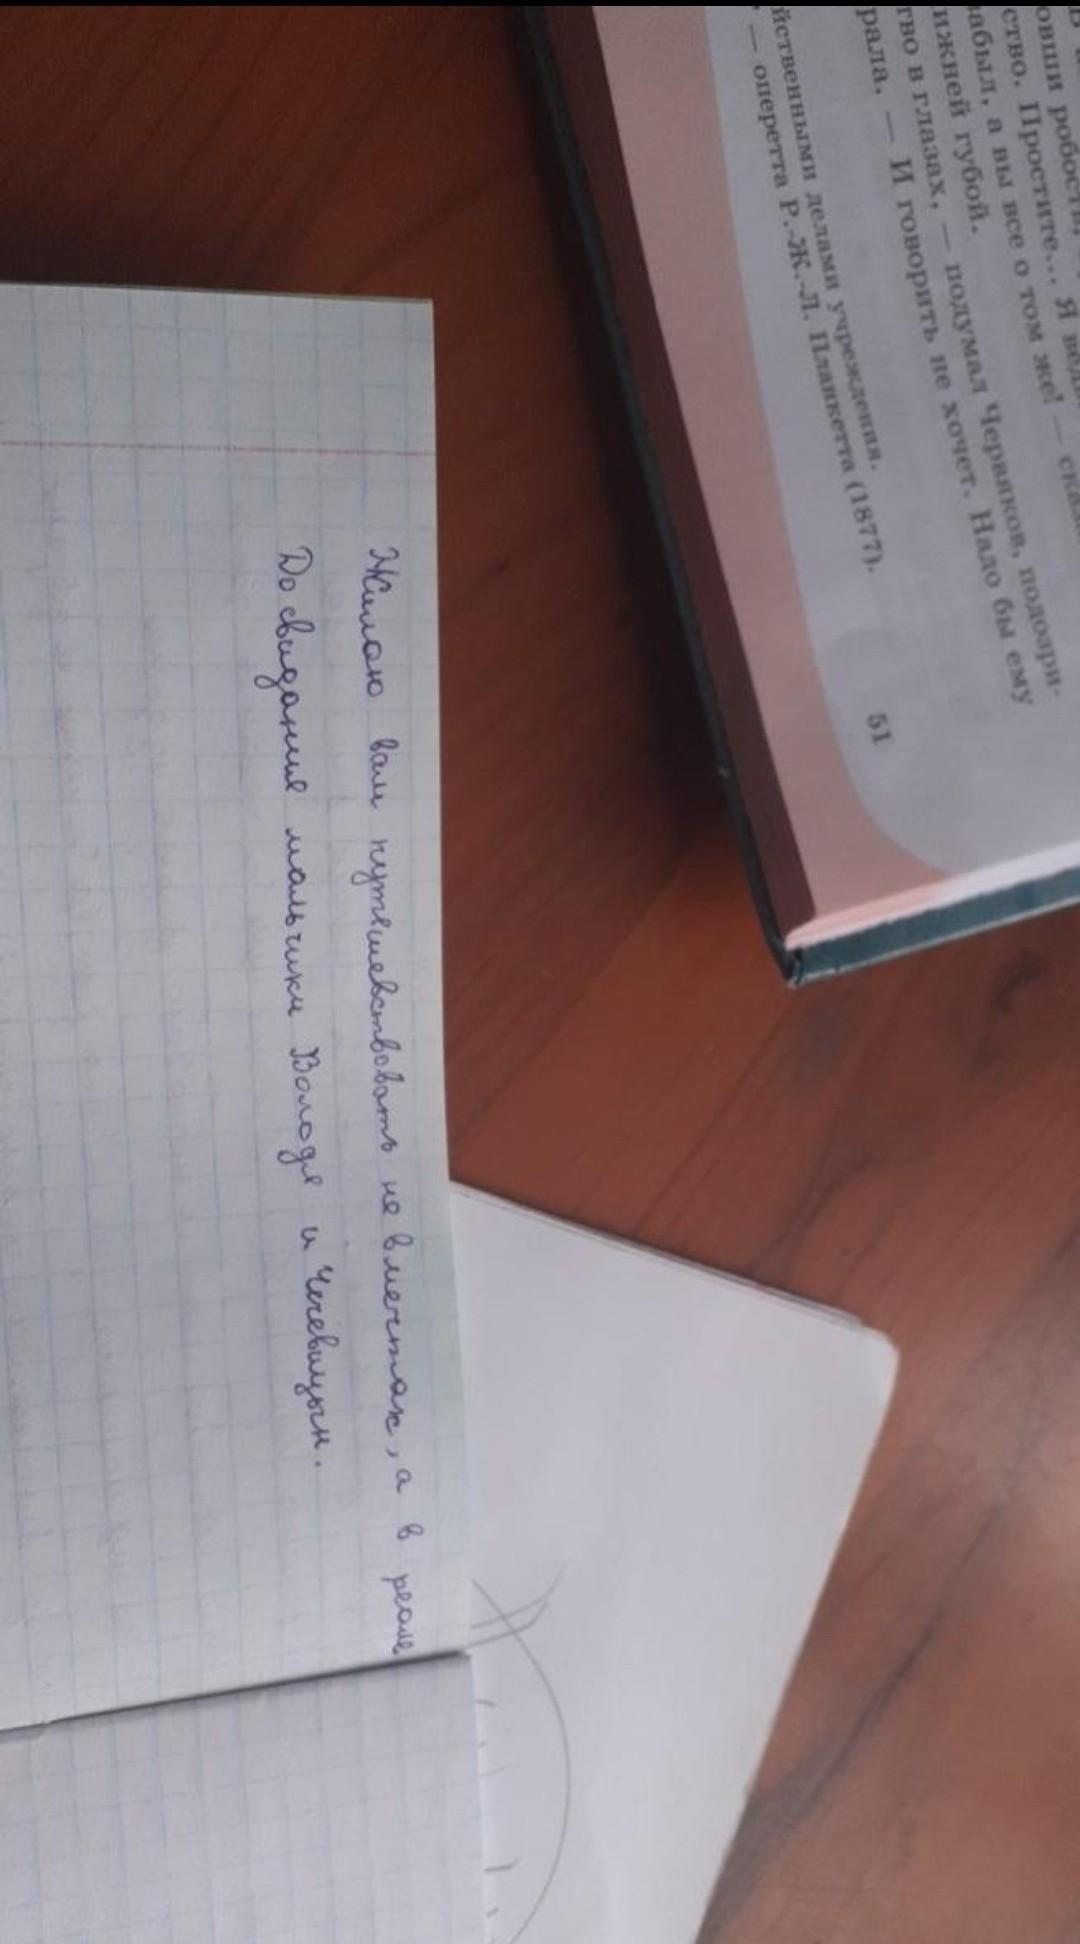 овши робости,
ство. Простите... Я ведь
забыл, а вы все о том же! — сказ
ижней губой.
тво в глазах, — подумал Червяков, подозри-
рала. — И говорить не хочет. Надо бы ему
йственными делами учреждения.
, — оперетта Р.-Ж.-Л. Планкетта (1877).
51
Жилаю вам путешевствовать не в мечтах, а в реале
До свидания мальчики Володя и Чечевицын.